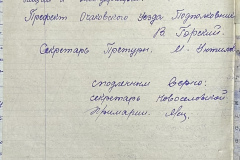 Префект Очаковского Уезда Подполковник
В. Горский.
Секретарь Претуры.
с подлинным верно:
секретарь Новоселовской
Примарии.